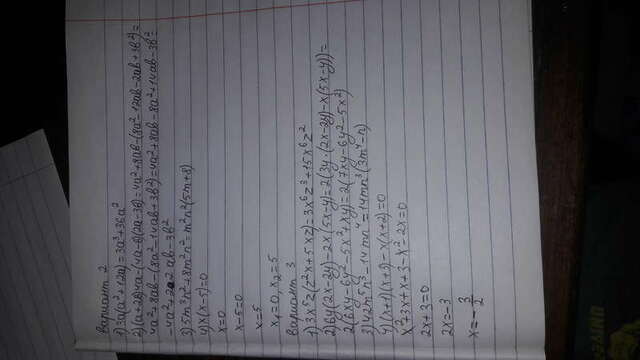 Вариант 2
1) 3a(a²+12a)=3a³+36a²
2) (a+2b)4a-(4a-b)(2a-3b)=4a²+8ab-(8a²-12ab-2ab+3b²)=
4a²+8ab-(8a²-14ab+3b²)=4a²+8ab-8a²+14ab-3b²=
-4a²+22ab-3b²
3) 5m³n²+8m²n²=m²n²(5m+8)
4) x(x-5)=0
x=0
x-5=0
x=5
x₁=0, x₂=5
Вариант 3
1) 3x⁵z(z²x+5xz)=3x⁶z³+15x⁶z²
2) 6y(2x-2y)-2x(5x-y)=2(3y·(2x-2y)-x(5x-y))=
2(6xy-6y²-5x²+xy)=2(7xy-6y²-5x²)
3) 42m⁵n³-14mn⁴=14mn³(3m⁴-n)
4) (x+1)(x+3)-x(x+2)=0
x²+3x+x+3-x²-2x=0
2x+3=0
2x=-3
x=-3/2
UNIVE